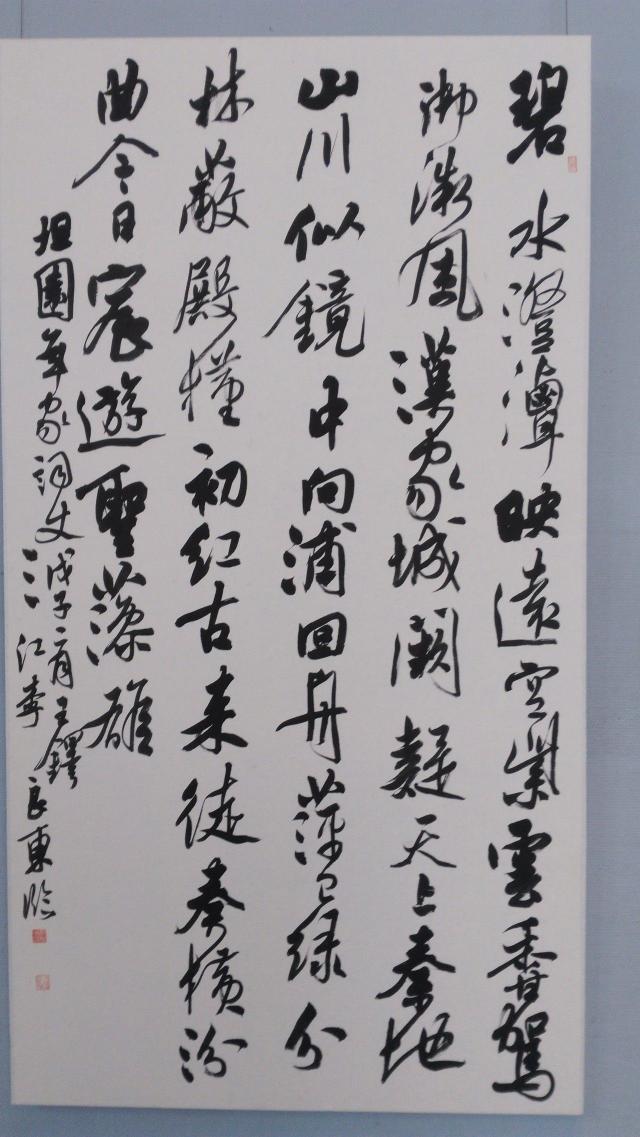 碧水澄潭映遠空紫雲香駕
御微風漢家城闕疑天上秦地
山川似鏡中向浦回舟萍已綠分
林蔽殿槿初紅古來徒奏橫汾
曲今日宸遊聖藻雄
坦園年家詞丈戊子二月王鐸
三江李良東臨